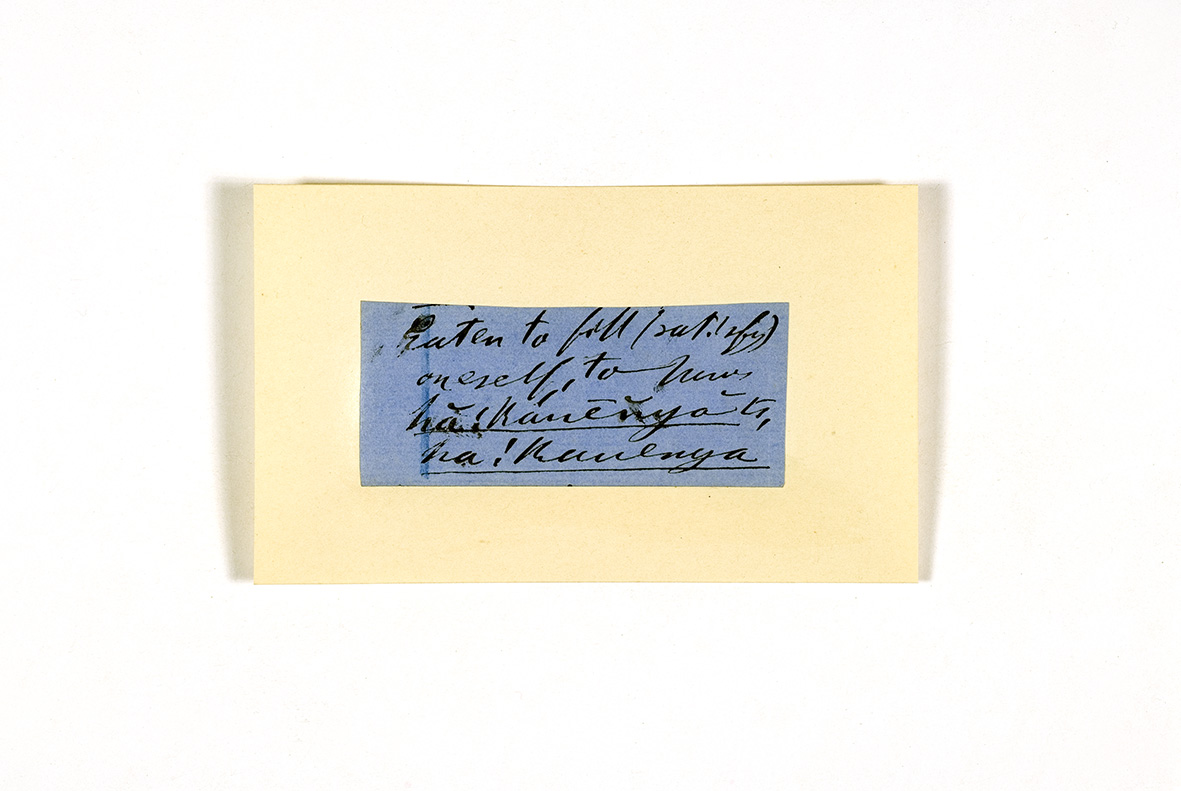 Eaten to fill (satisfy)
oneself, to
hă! kánĕnyă ts,
ha! kanenya